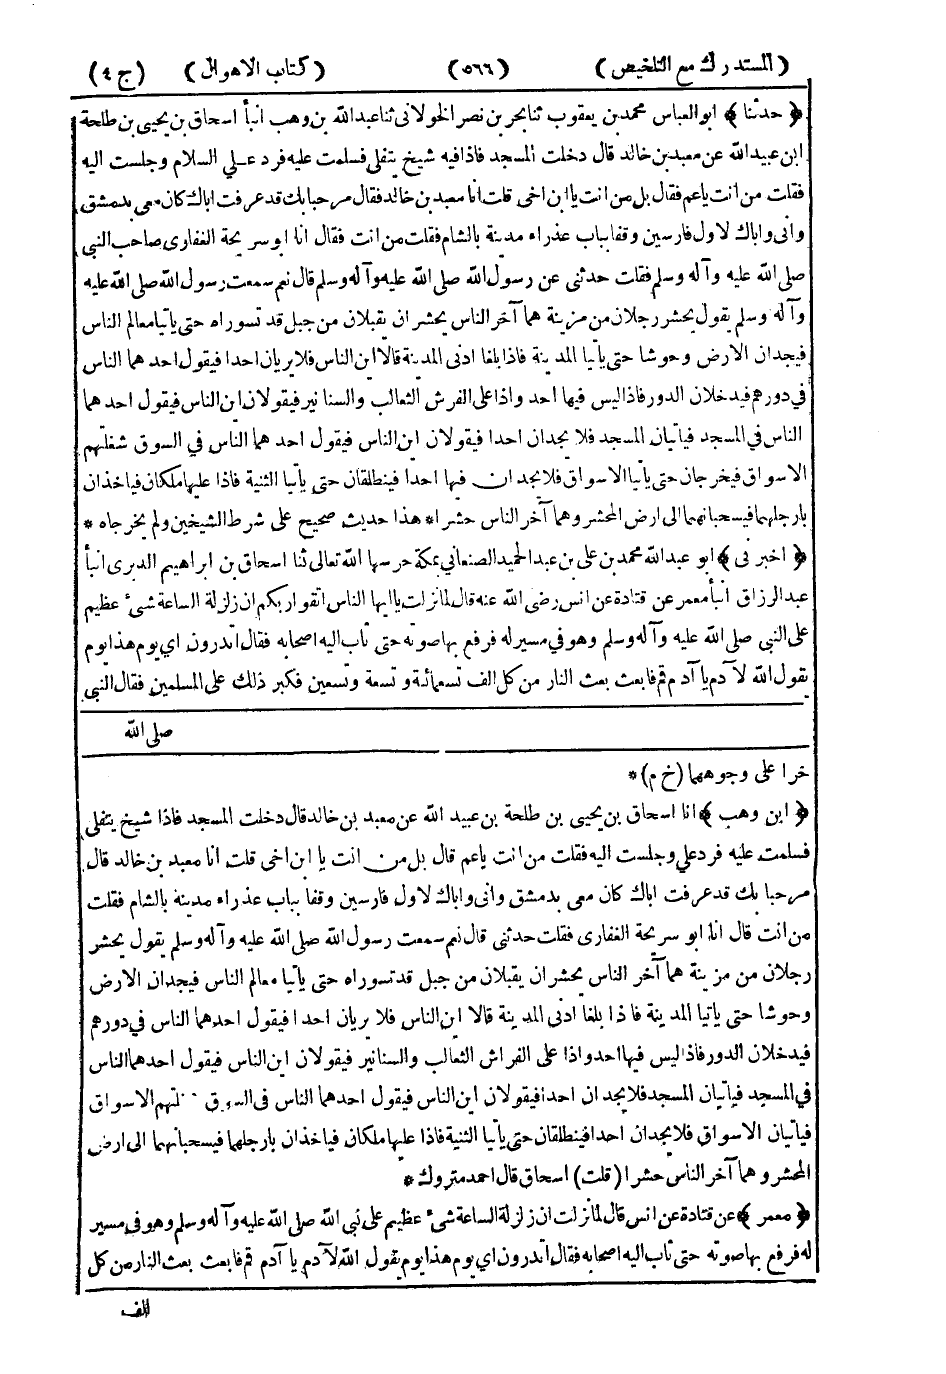 (المستدرك مع التلخيص) (٥٦٦) (كتاب الاهوال) (ج ٤)
﴿ حدثنا ﴾ ابو العباس محمد بن يعقوب ثنا بحر بن نصر الخولانى ثنا عبد الله بن وهب انبأ اسحاق بن يحيى بن طلحة
ابن عبيد الله عن معبد بن خالد قال دخلت المسجد فاذا فيه شيخ يتفلى فسلمت عليه فرد علي السلام وجلست اليه
فقلت من انت ياعم فقال بل من انت يا ابن اخى قلت انا معبد بن خالد فقال مرحبا بك قد عرفت اباك كان معى بدمشق
وانى واباك لاول فارسين وقفا بباب عذراء مدينة بالشام فقلت من انت فقال انا ابو سريحة الغفارى صاحب النبى
صلى الله عليه وآله وسلم فقلت حدثنى عن رسول الله صلى الله عليه وآله وسلم قال نعم سمعت رسول الله صلى الله عليه
وآله وسلم يقول يحشر رجلان من مزينة هما آخر الناس يحشران يقبلان من جبل قد تسوراه حتى يأتيا معالم الناس
فيجدان الارض وحوشا حتى يأتيا المدينة فاذا بلغا ادنى المدينة قالا اين الناس فلا يريان احدا فيقول احدهما الناس
في دورهم فيدخلان الدور فاذا ليس فيها احد واذا على الفرش الثعالب والسنانير فيقولان اين الناس فيقول احدهما
الناس في المسجد فيأتيان المسجد فلا يجدان احدا فيقولان اين الناس فيقول احدهما الناس في السوق شغلتهم
الاسواق فيخرجان حتى يأتيا الاسواق فلا يجدان فيها احدا فينطلقان حتى يأتيا الثنية فاذا عليها ملكان فياخذان
بارجلهما فيسحبانهما الى ارض المحشر وهما آخر الناس حشرا * هذا حديث صحيح على شرط الشيخين ولم يخرجاه *
﴿ اخبرنى ﴾ ابو عبد الله محمد بن على بن عبد الحميد الصنعاني بمكة حرسها الله تعالى ثنا اسحاق بن ابراهيم الدبرى انبأ
عبد الرزاق انبأ معمر عن قتادة عن انس رضى الله عنه قال لما نزلت يا ايها الناس اتقوا ربكم ان زلزلة الساعة شىء عظيم
على النبى صلى الله عليه وآله وسلم وهو في مسير له فرفع بها صوته حتى ثاب اليه اصحابه فقال اتدرون اي يوم هذا يوم
يقول الله لآدم يا آدم قم فابعث بعث النار من كل الف تسعمائة وتسعة وتسعين فكبر ذلك على المسلمين فقال النبى
صلى الله
خرا على وجوههما (خ م) *
﴿ ابن وهب ﴾ انا اسحاق بن يحيى بن طلحة بن عبيد الله عن معبد بن خالد قال دخلت المسجد فاذا شيخ يتفلى
فسلمت عليه فرد علي وجلست اليه فقلت من انت ياعم قال بل من انت يا ابن اخى قلت انا معبد بن خالد قال
مرحبا بك قد عرفت اباك كان معى بدمشق وانى واباك لاول فارسين وقفا بباب عذراء مدينة بالشام فقلت
من انت قال انا ابو سريحة الغفارى فقلت حدثنى قال نعم سمعت رسول الله صلى الله عليه وآله وسلم يقول يحشر
رجلان من مزينة هما آخر الناس يحشران يقبلان من جبل قد تسوراه حتى يأتيا معالم الناس فيجدان الارض
وحوشا حتى يأتيا المدينة فاذا بلغا ادنى المدينة قالا اين الناس فلا يريان احدا فيقول احدهما الناس في دورهم
فيدخلان الدور فاذا ليس فيها احد واذا على الفراش الثعالب والسنانير فيقولان اين الناس فيقول احدهما الناس
في المسجد فيأتيان المسجد فلا يجدان احدا فيقولان اين الناس فيقول احدهما الناس في الاسواق
فيأتيان الاسواق فلا يجدان احدا فينطلقان حتى يأتيا الثنية فاذا عليها ملكان فياخذان بارجلهما فيسحبانهما الى ارض
المحشر وهما آخر الناس حشرا (قلت) اسحاق قال احمد متروك *
﴿ معمر ﴾ عن قتادة عن انس قال لما نزلت ان زلزلة الساعة شىء عظيم على نبى الله صلى الله عليه وآله وسلم وهو في مسير
له فرفع بها صوته حتى ثاب اليه اصحابه فقال اتدرون اي يوم هذا يوم يقول الله لآدم يا آدم قم فابعث بعث النار من كل
الف